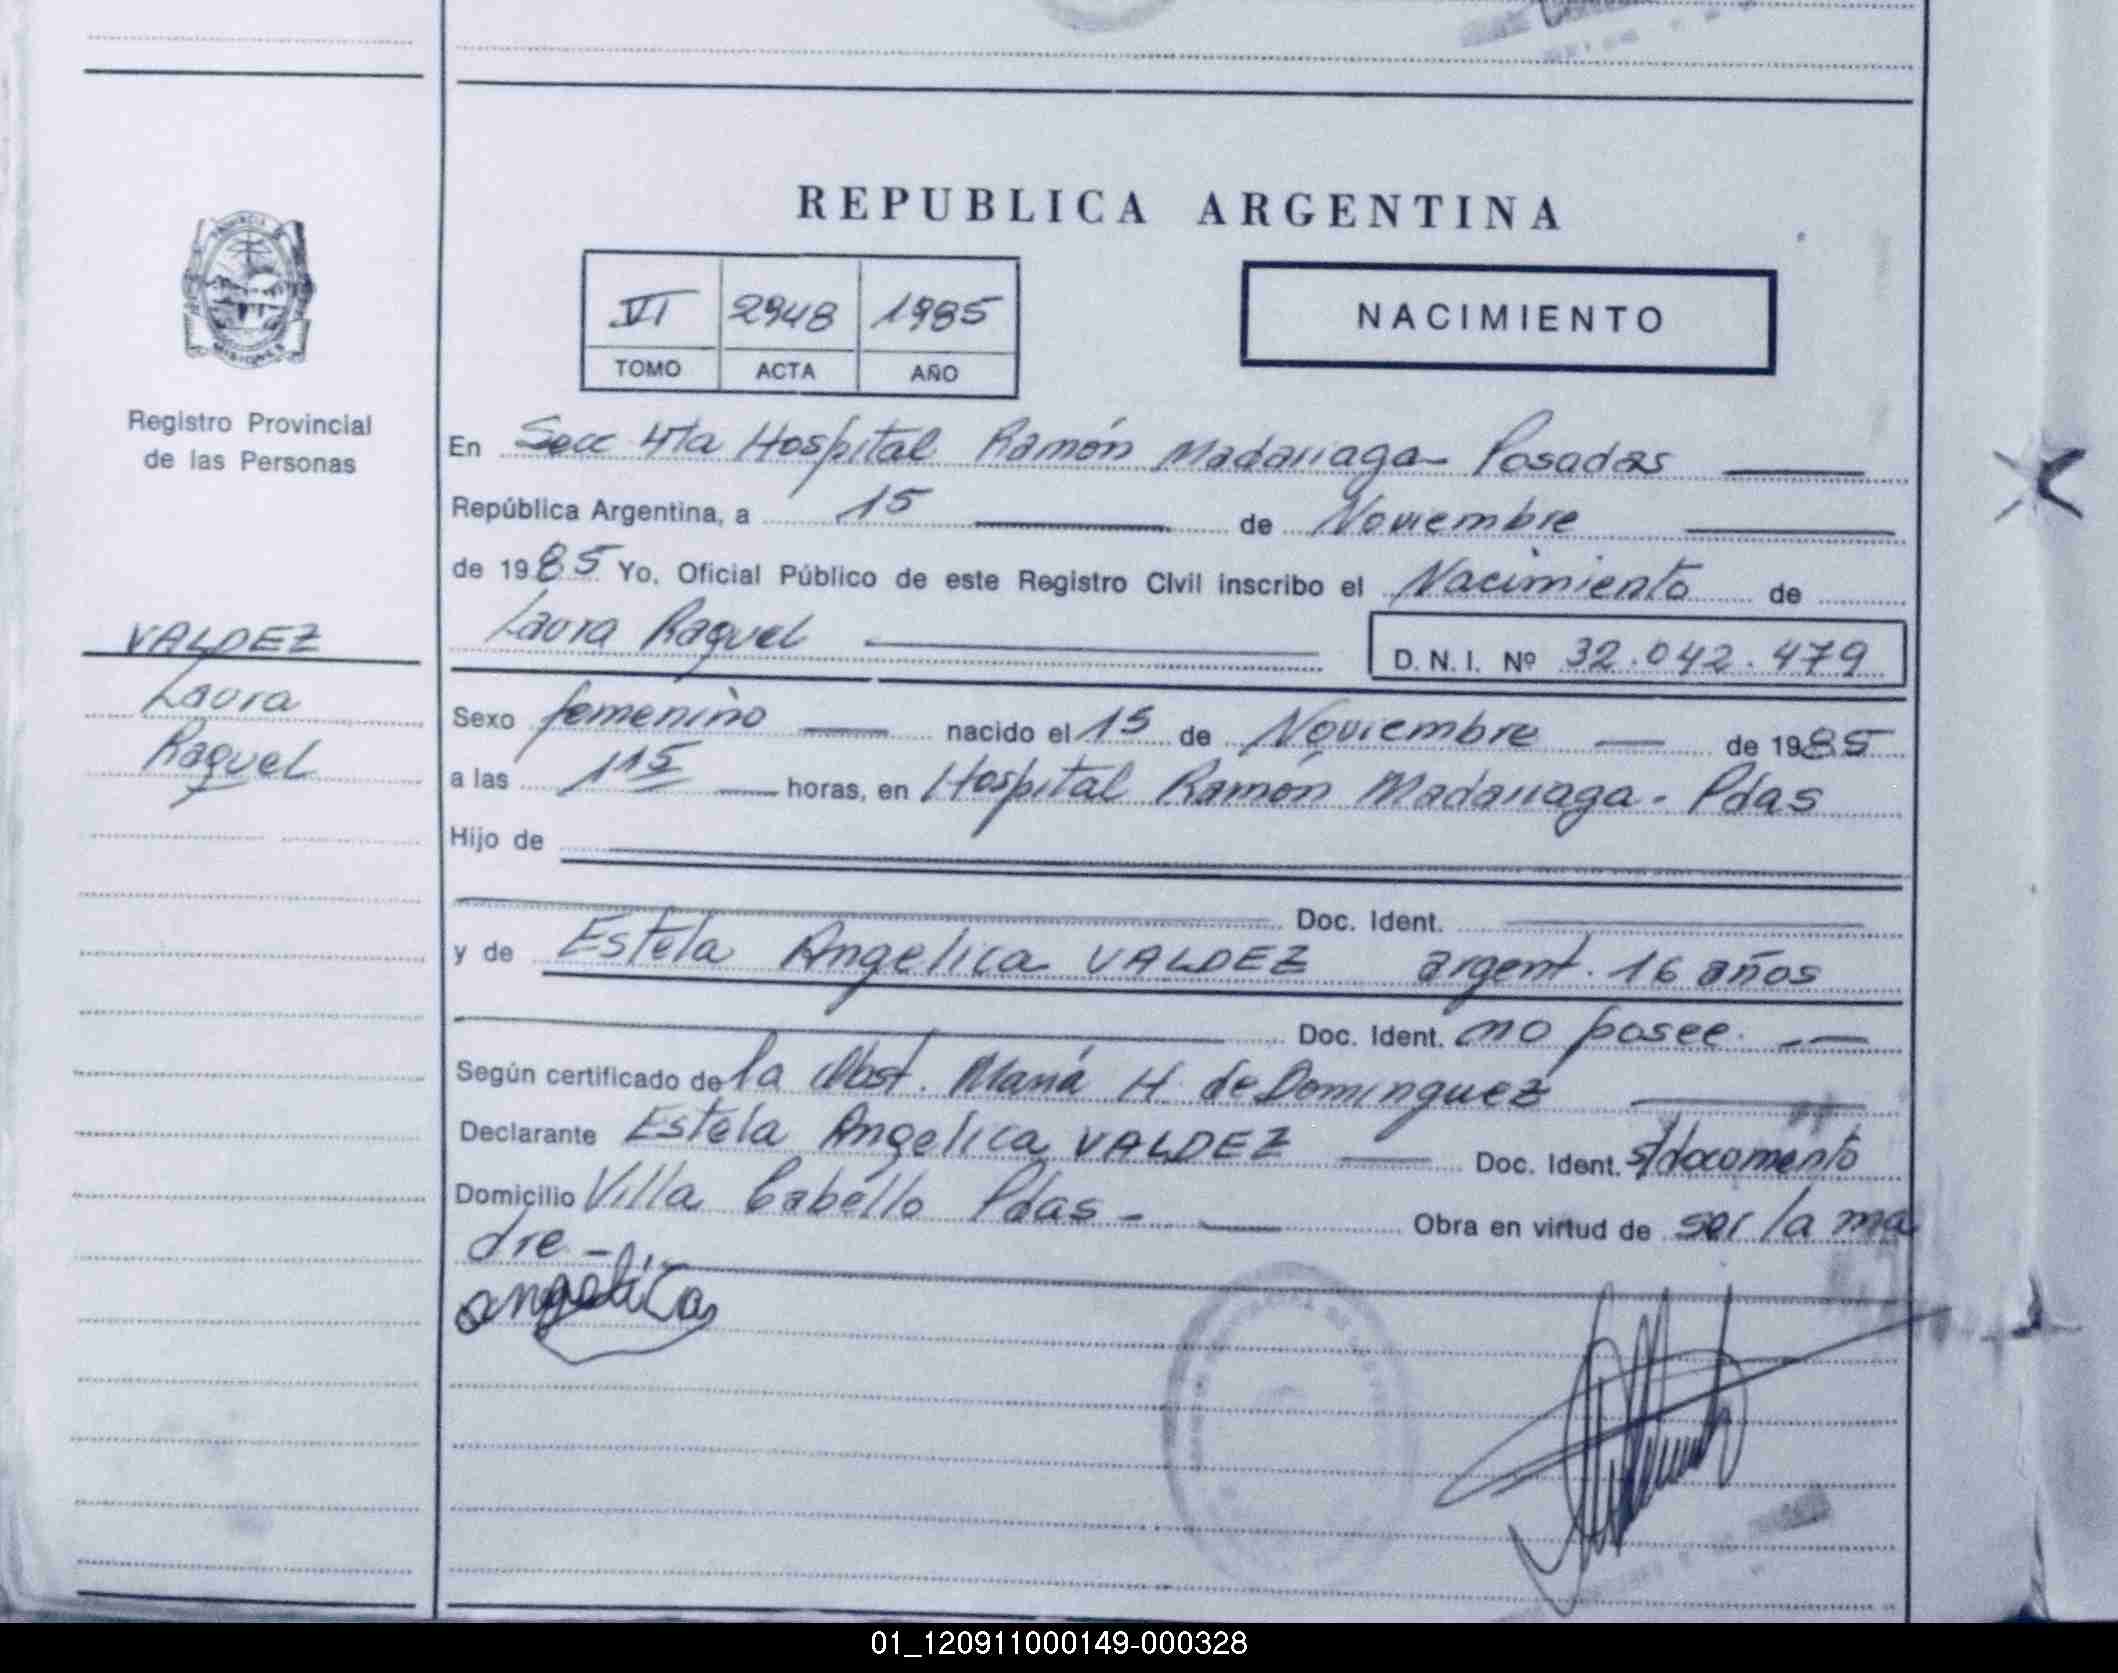 REPUBLICA ARGENTINA
VI 2948 1985
TOMO ACTA AÑO
NACIMIENTO
Registro Provincial
de las Personas
VALDEZ
Laura
Raquel
En Secc 4ta Hospital Ramón Madariaga - Posadas
República Argentina, a 15 de Noviembre
de 1985 Yo, Oficial Público de este Registro Civil inscribo el Nacimiento de
Laura Raquel D. N. I. Nº 32.042.479
Sexo femenino nacido el 15 de Noviembre de 1985
a las 1 15 horas, en Hospital Ramón Madariaga - Pdas
Hijo de
Doc. Ident.
y de Estela Angelica VALDEZ argent. 16 años
Doc. Ident. no posee.
Según certificado de la Obst. María H. de Dominguez
Declarante Estela Angelica VALDEZ Doc. Ident. s/documento
Domicilio Villa Cabello Pdas - Obra en virtud de ser la ma
dre -
angelica
01_120911000149-000328